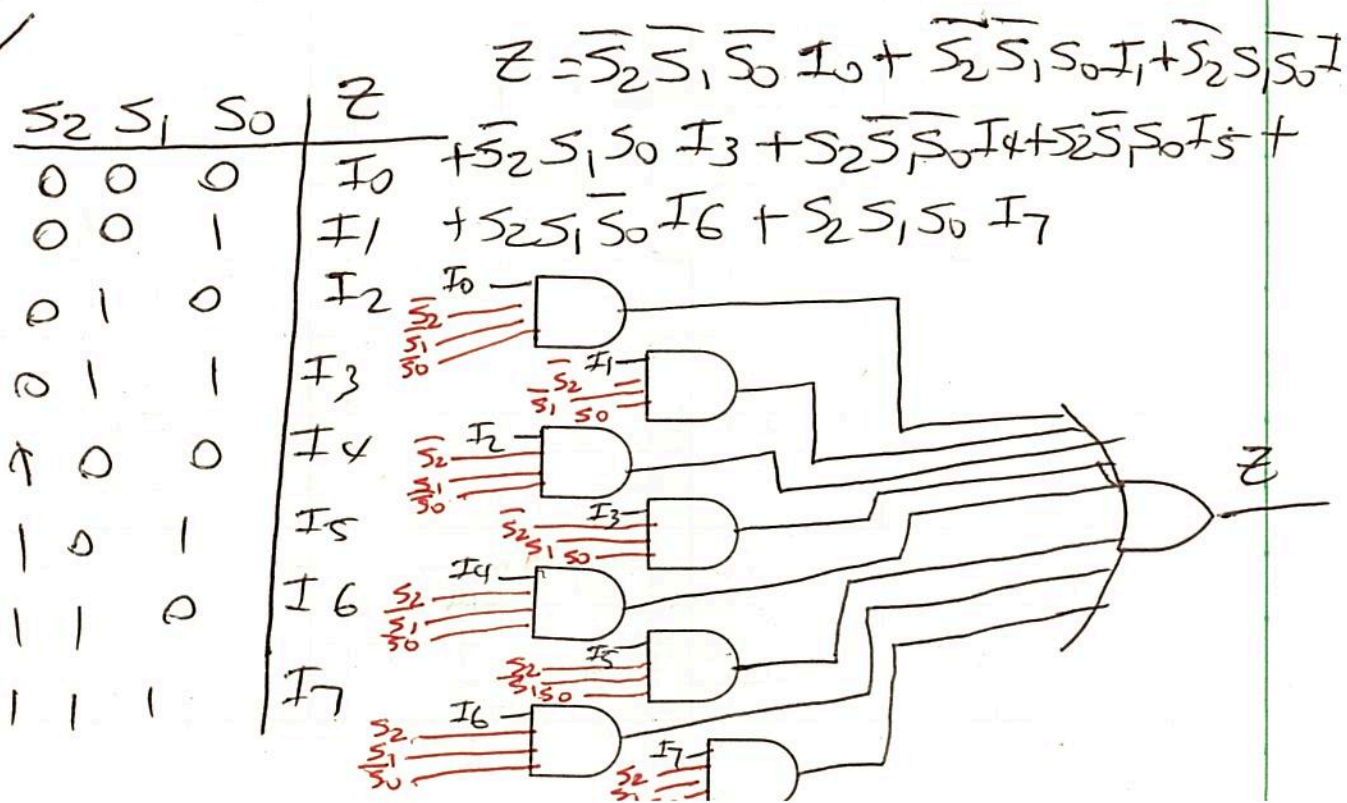 Z = S̅₂ S̅₁ S̅₀ I₀ + S̅₂ S̅₁ S₀ I₁ + S̅₂ S₁ S̅₀ I
+ S̅₂ S₁ S₀ I₃ + S₂ S̅₁ S̅₀ I₄ + S₂ S̅₁ S₀ I₅ +
+ S₂ S₁ S̅₀ I₆ + S₂ S₁ S₀ I₇
S₂ S₁ S₀ Z
0 0 0 I₀
0 0 1 I₁
0 1 0 I₂
0 1 1 I₃
1 0 0 I₄
1 0 1 I₅
1 1 0 I₆
1 1 1 I₇
I₀
S̅₂
S̅₁
S̅₀
I₁
S̅₂
S̅₁ S₀
I₂
S̅₂
S₁
S̅₀
I₃
S̅₂
S₁ S₀
I₄
S₂
S̅₁
S̅₀
I₅
S₂
S̅₁ S₀
I₆
S₂
S₁
S̅₀
I₇
S₂
Z